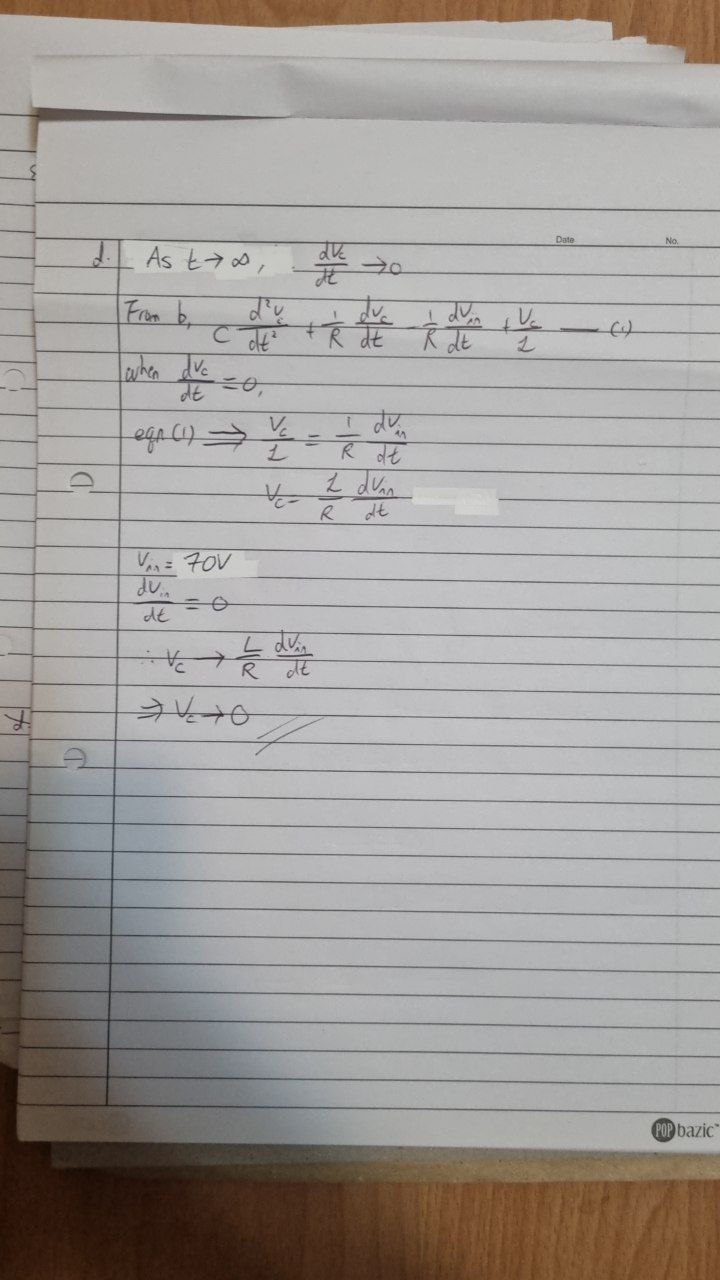 Date No.
d. As t → ∞, dVc/dt → 0
From b, C d²Vc/dt² + 1/R dVc/dt - 1/R dVin/dt + Vc/L — (1)
when dVc/dt = 0,
eqn (1) ⇒ Vc/L = 1/R dVin/dt
Vc = L/R dVin/dt
Vin = 70V
dVin/dt = 0
∴ Vc → L/R dVin/dt
⇒ Vc → 0 //
POP bazic™